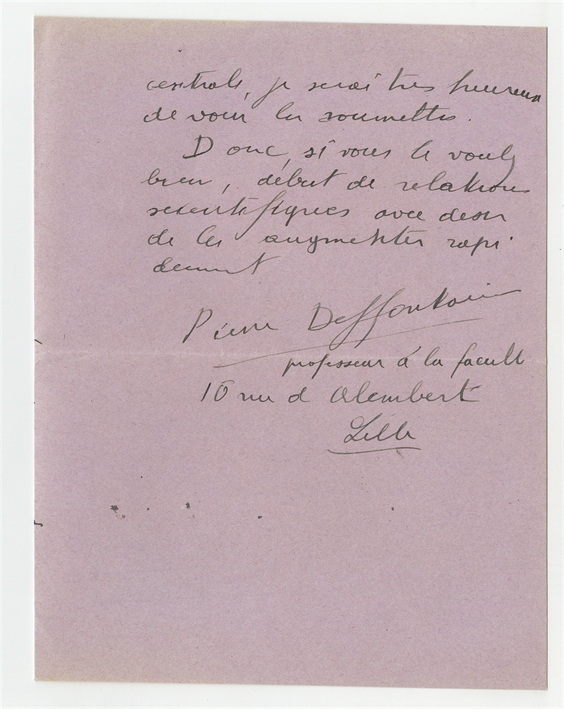 centrale, je serai très heureux
de vous les soumettre.
Donc, si vous le voulez
bien, début de relations
scientifiques avec désir
de les augmenter rapi
dement
Pierre Deffontaines
professeur à la facult
10 rue d Alembert
Lille